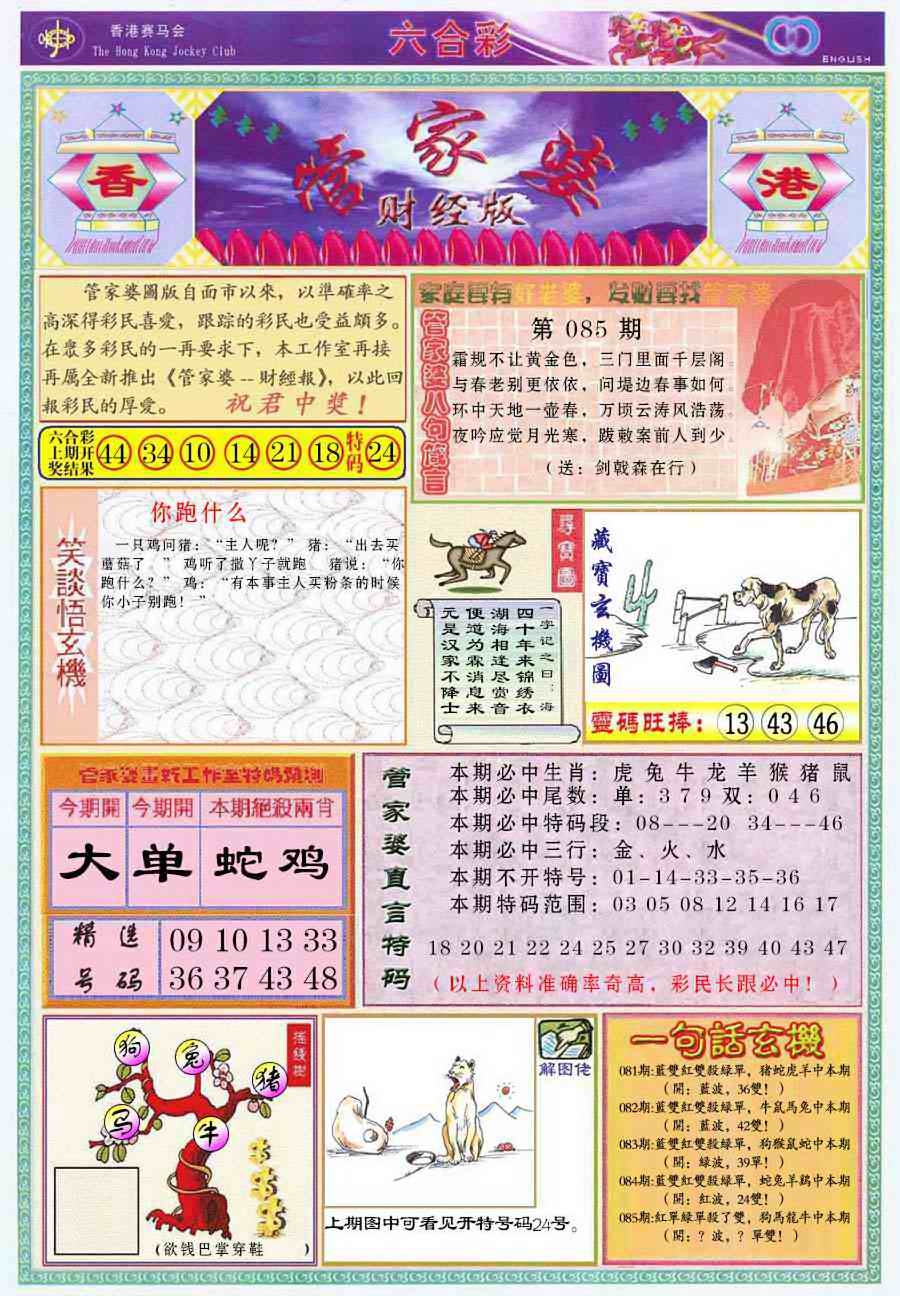 香港赛马会
The Hong Kong Jockey Club
六合彩
ENGLISH
香
管家婆
财经版
港
管家婆圖版自面市以來，以準確率之
高深得彩民喜愛，跟踪的彩民也受益頗多。
在眾多彩民的一再要求下，本工作室再接
再厲全新推出《管家婆--財經報》，以此回
報彩民的厚愛。 祝君中獎！
六合彩
上期开
奖结果
44 34 10 14 21 18 特码 24
家庭要有好老婆，发财要找管家婆
管家婆八句箴言
第 085 期
霜规不让黄金色，三门里面千层阁。
与春老别更依依，问堤边春事如何。
环中天地一壶春，万顷云涛风浩荡。
夜吟应觉月光寒，跋敕案前人到少。
（送：剑戟森在行）
笑談悟玄機
你跑什么
一只鸡问猪：“主人呢？” 猪：“出去买
蘑菇了。” 鸡听了撒丫子就跑。 猪说：“你
跑什么？” 鸡：“有本事主人买粉条的时候
你小子别跑！”
尋寶圖
一字记之曰：海
四十年来锦绣衣
湖海相逢尽赏音
便道为霖消息来
元是汉家不降士
藏寶玄機圖
靈碼旺捧：13 43 46
管家婆畫新工作室特碼預測
今期開 今期開 本期絕殺兩肖
大 单 蛇鸡
精选
号码
09 10 13 33
36 37 43 48
管家婆直言特码
本期必中生肖：虎 兔 牛 龙 羊 猴 猪 鼠
本期必中尾数：单：3 7 9 双：0 4 6
本期必中特码段：08---20 34---46
本期必中三行：金、火、水
本期不开特号：01-14-33-35-36
本期特码范围：03 05 08 12 14 16 17
18 20 21 22 24 25 27 30 32 39 40 43 47
（以上资料准确率奇高，彩民长跟必中！）
摇錢樹
狗
兔
猪
马
牛
（欲钱巴掌穿鞋 ）
解图佬
上期图中可看见开特号码24号。
一句話玄機
081期:藍雙紅雙殺綠單，猪蛇虎羊中本期
（開：藍波，36雙！）
082期:藍雙紅雙殺綠單，牛鼠馬兔中本期
（開：藍波，42雙！）
083期:藍雙紅雙殺綠單，狗猴鼠蛇中本期
（開：綠波，39單！）
084期:藍雙紅雙殺綠單，蛇兔羊鷄中本期
（開：紅波，24雙！）
085期:紅單綠單殺了雙，狗馬龍牛中本期
（開：？波，？單雙！）